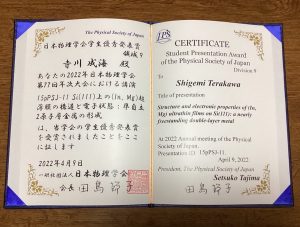 The Physical Society of Japan
日本物理学会学生優秀発表賞
領域9
寺川 成海 殿
あなたの2022年日本物理学会
第77回年次大会における講演
15pPSJ-11 Si(111)上の(In, Mg)超
薄膜の構造と電子状態:準自立
2原子層金属の形成
は、当学会の学生優秀発表賞
を受賞されましたことをここ
に証します
2022年4月9日
一般社団法人日本物理学会
会長 田島節子
The Physical Society of Japan
JPS
CERTIFICATE
Student Presentation Award
of the Physical Society of Japan
Division 9
To
Shigemi Terakawa
Title of presentation
Structure and electronic properties of (In,
Mg) ultrathin films on Si(111): a nearly
freestanding double-layer metal
At 2022 Annual meeting of the Physical
Society of Japan,
Presentation ID 15pPSJ-11.
April 9, 2022
President, The Physical Society of Japan
Setsuko Tajima
田島節子